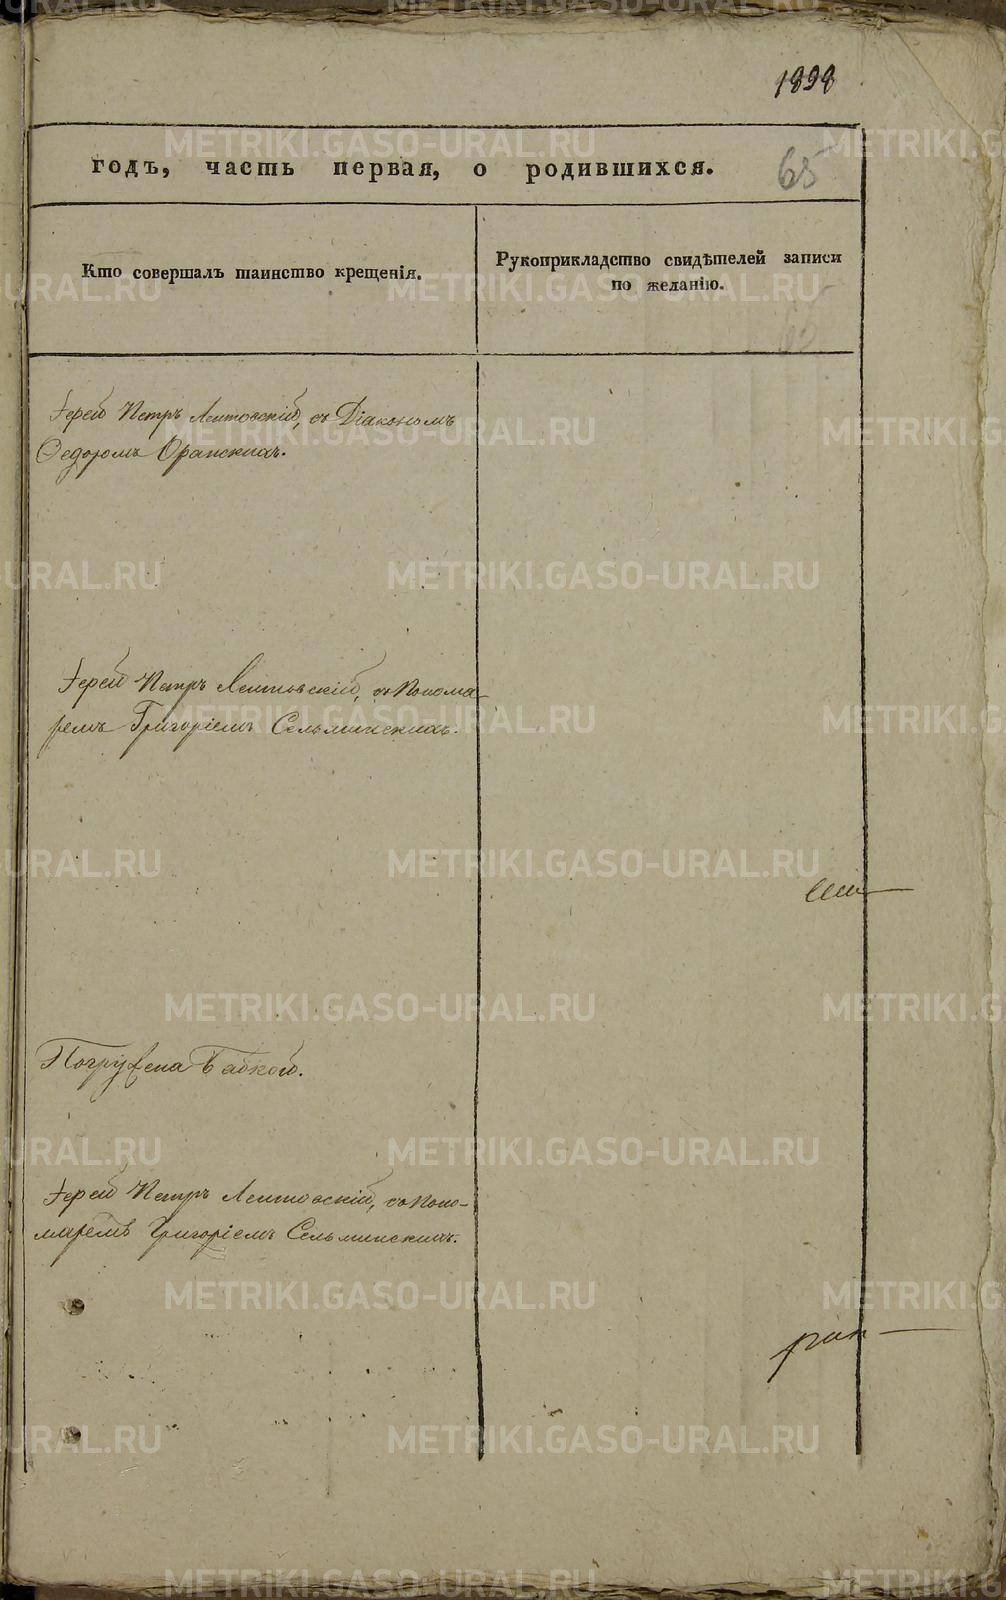 1898
годъ, часть первая, о родившихся.
65
Кто совершалъ таинство крещенія.
Рукоприкладство свидѣтелей записи
по желанію.
Іерей Петръ Лептовскій, съ Діакономъ
Ѳедоромъ Оранскимъ.
Іерей Петръ Лептовскій, съ Понома-
ремъ Григоріемъ Сельминскимъ.
Погружена Бабкой.
Іерей Петръ Лептовскій, съ Поно-
маремъ Григоріемъ Сельминскимъ.
METRIKI.GASO-URAL.RU